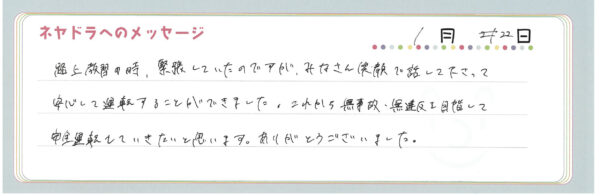 ネヤドラへのメッセージ
1月 22日
路上教習の時、緊張していたのですが、みなさん笑顔で話して下さって
安心して運転することができました。これから無事故・無違反を目指して
運転していきたいと思います。ありがとうございました。